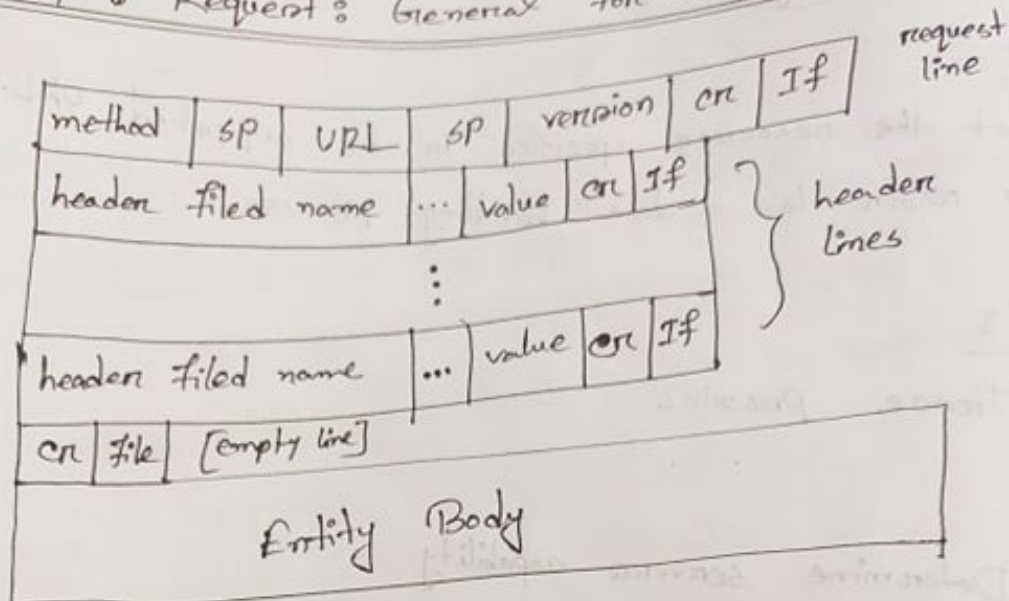 Request: General for
request
line
method SP URL SP version cr If
header filed name ... value cr If
header
lines
⋮
header filed name ... value cr If
cr file [empty line]
Entity Body